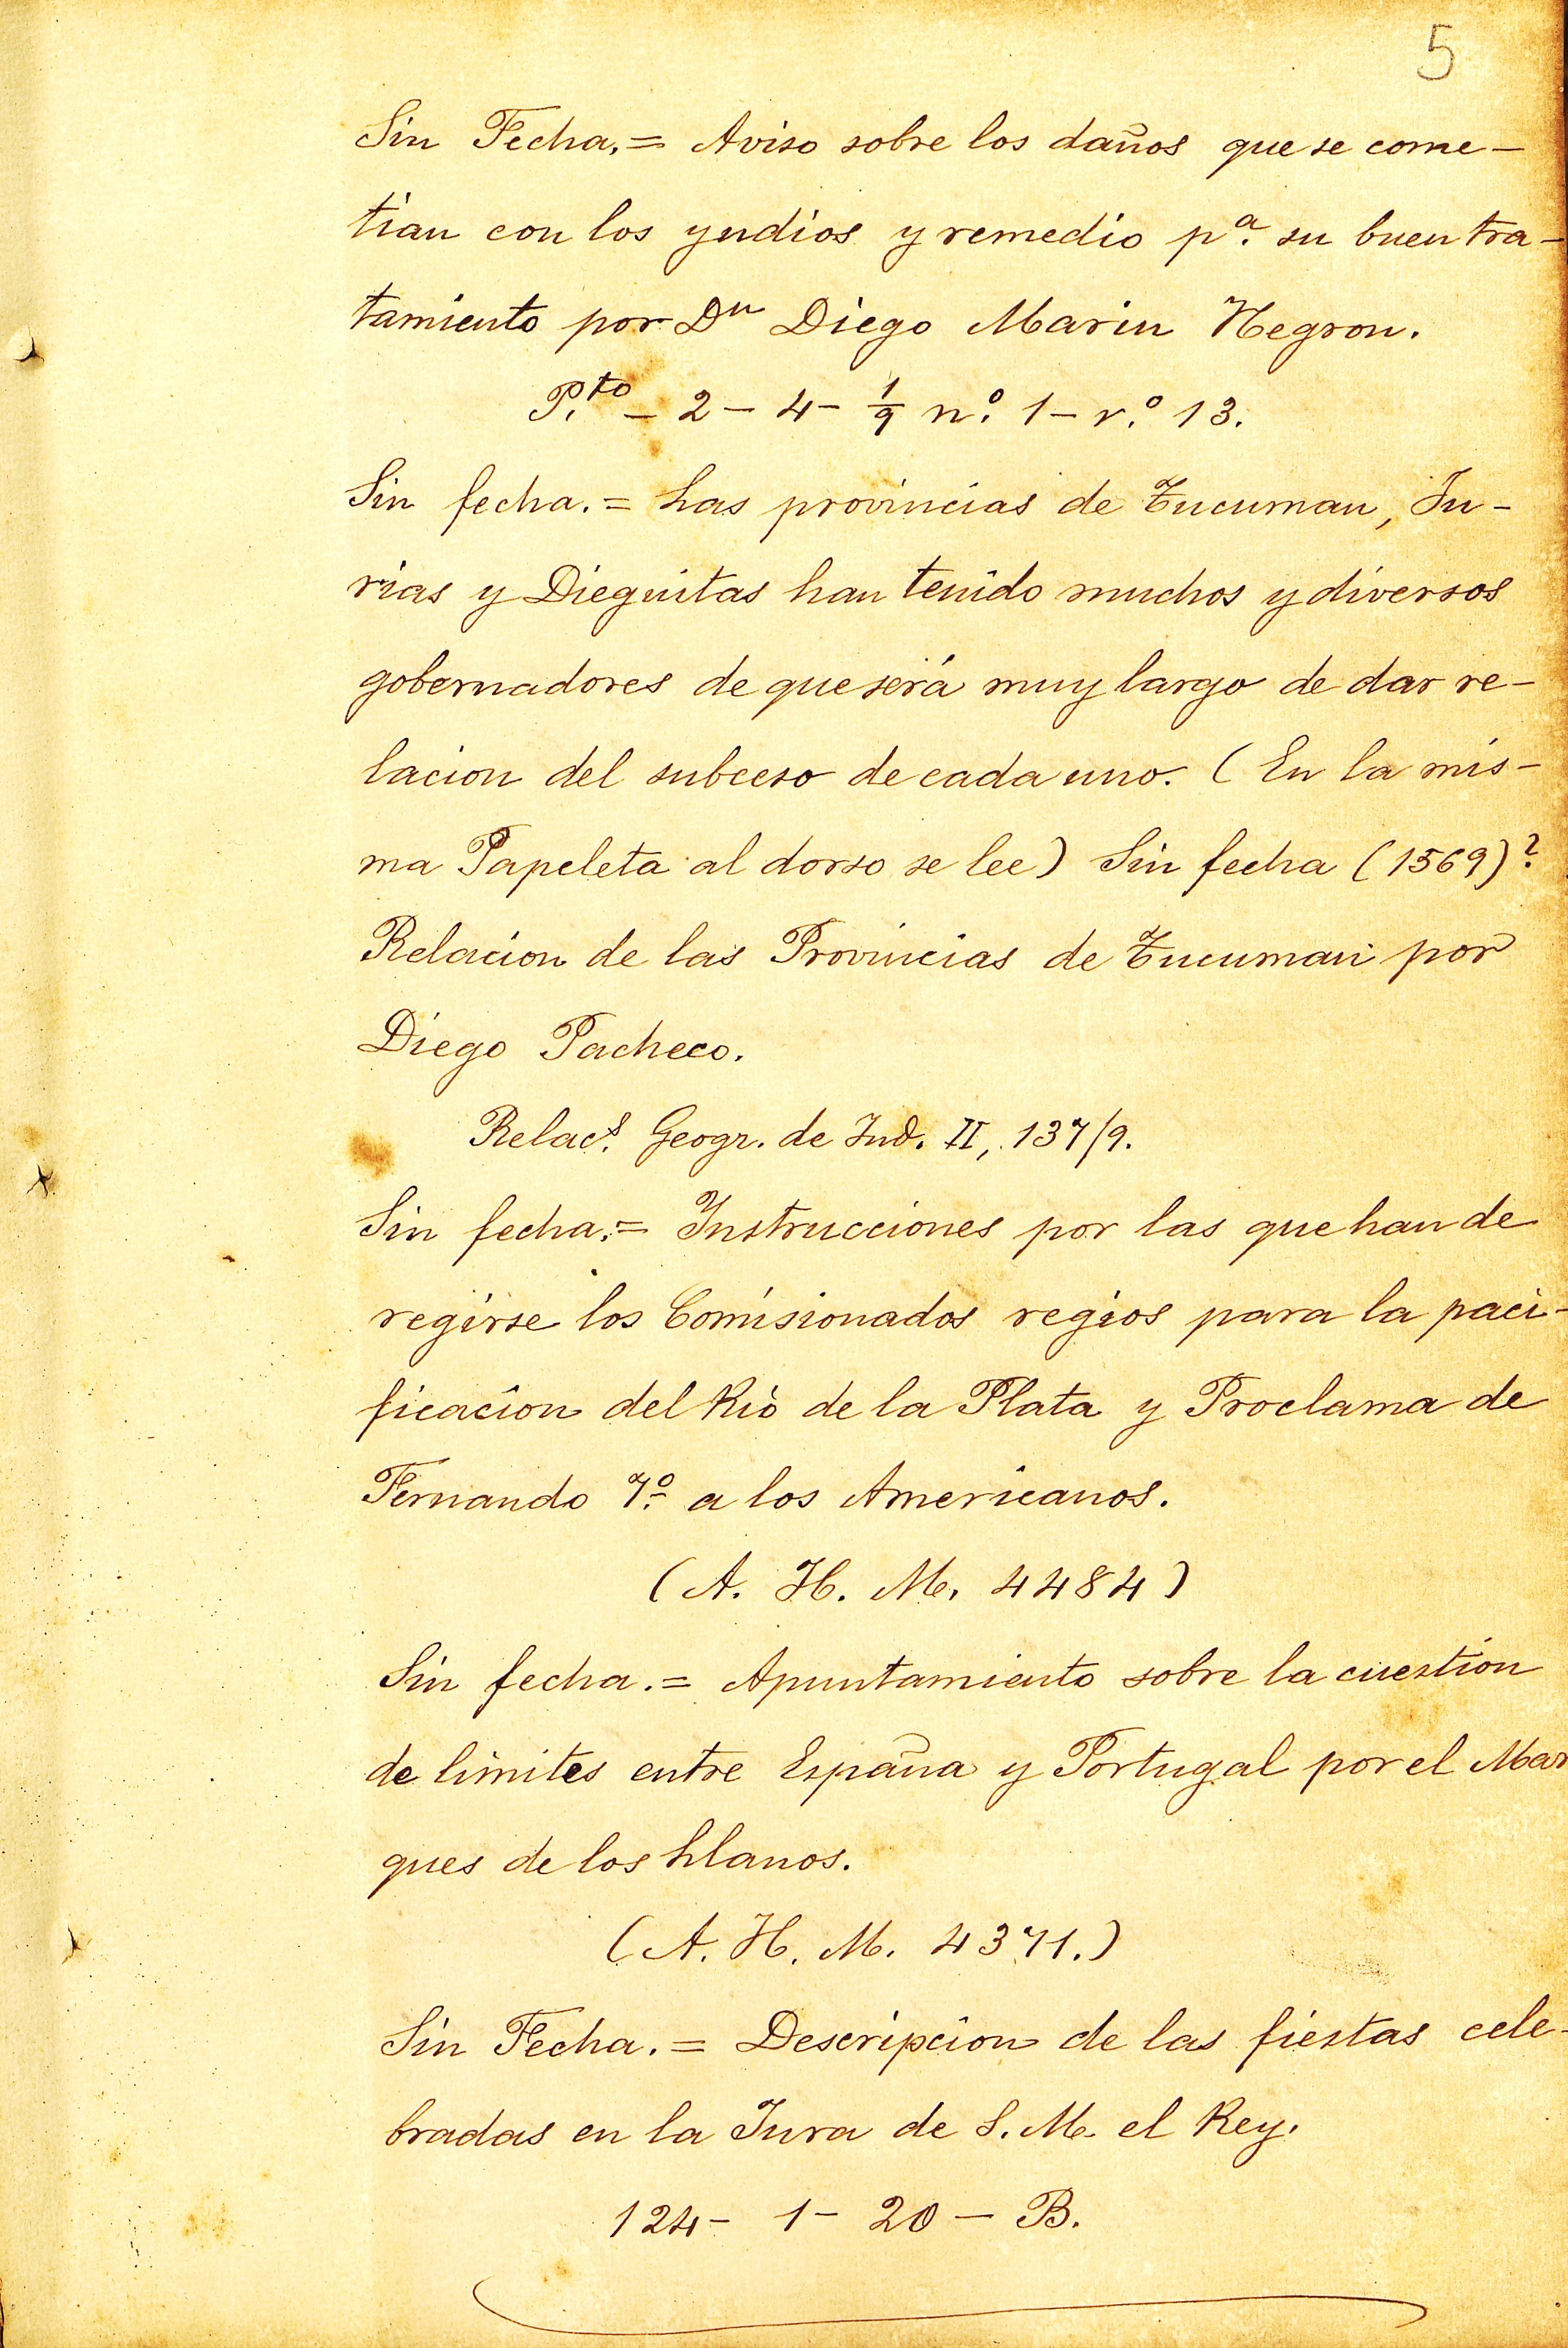 5
Sin Fecha.= Aviso sobre los daños que se come-
tian con los yndios y remedio pª. su buen tra-
tamiento por Dn Diego Marin Negron.
P.to - 2 - 4 - 1/9 n.º 1 - r.º 13.
Sin fecha. = Las provincias de Tucuman, Ju-
rias y Dieguitas han tenido muchos y diversos
gobernadores de que será muy largo de dar re-
lacion del subceso de cada uno. (En la mis-
ma Papeleta al dorso se lee) Sin fecha (1569)?
Relacion de las Provincias de Tucuman por
Diego Pacheco.
Relacs. Geogr. de Ind. II, 137/9.
Sin fecha.= Instrucciones por las que han de
regirse los Comisionados regios para la paci-
ficacion del Rio de la Plata y Proclama de
Fernando 7º a los Americanos.
(A. H. M. 4484)
Sin fecha. = Apuntamiento sobre la cuestion
de limites entre España y Portugal por el Mar
ques de los Llanos.
(A. H. M. 4371.)
Sin Fecha. = Descripcion de las fiestas cele-
bradas en la Jura de S. M. el Rey.
124 - 1 - 20 - B.